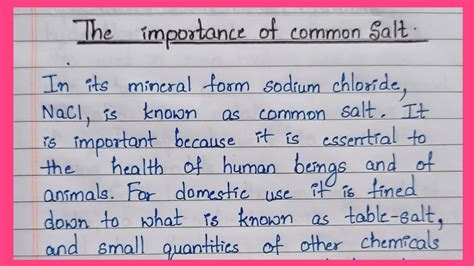 The importance of common Salt.
In its mineral form sodium chloride,
NaCl, is known as common salt. It
is important because it is essential to
the health of human beings and of
animals. For domestic use it is fined
down to what is known as table-salt,
and small quantities of other chemicals